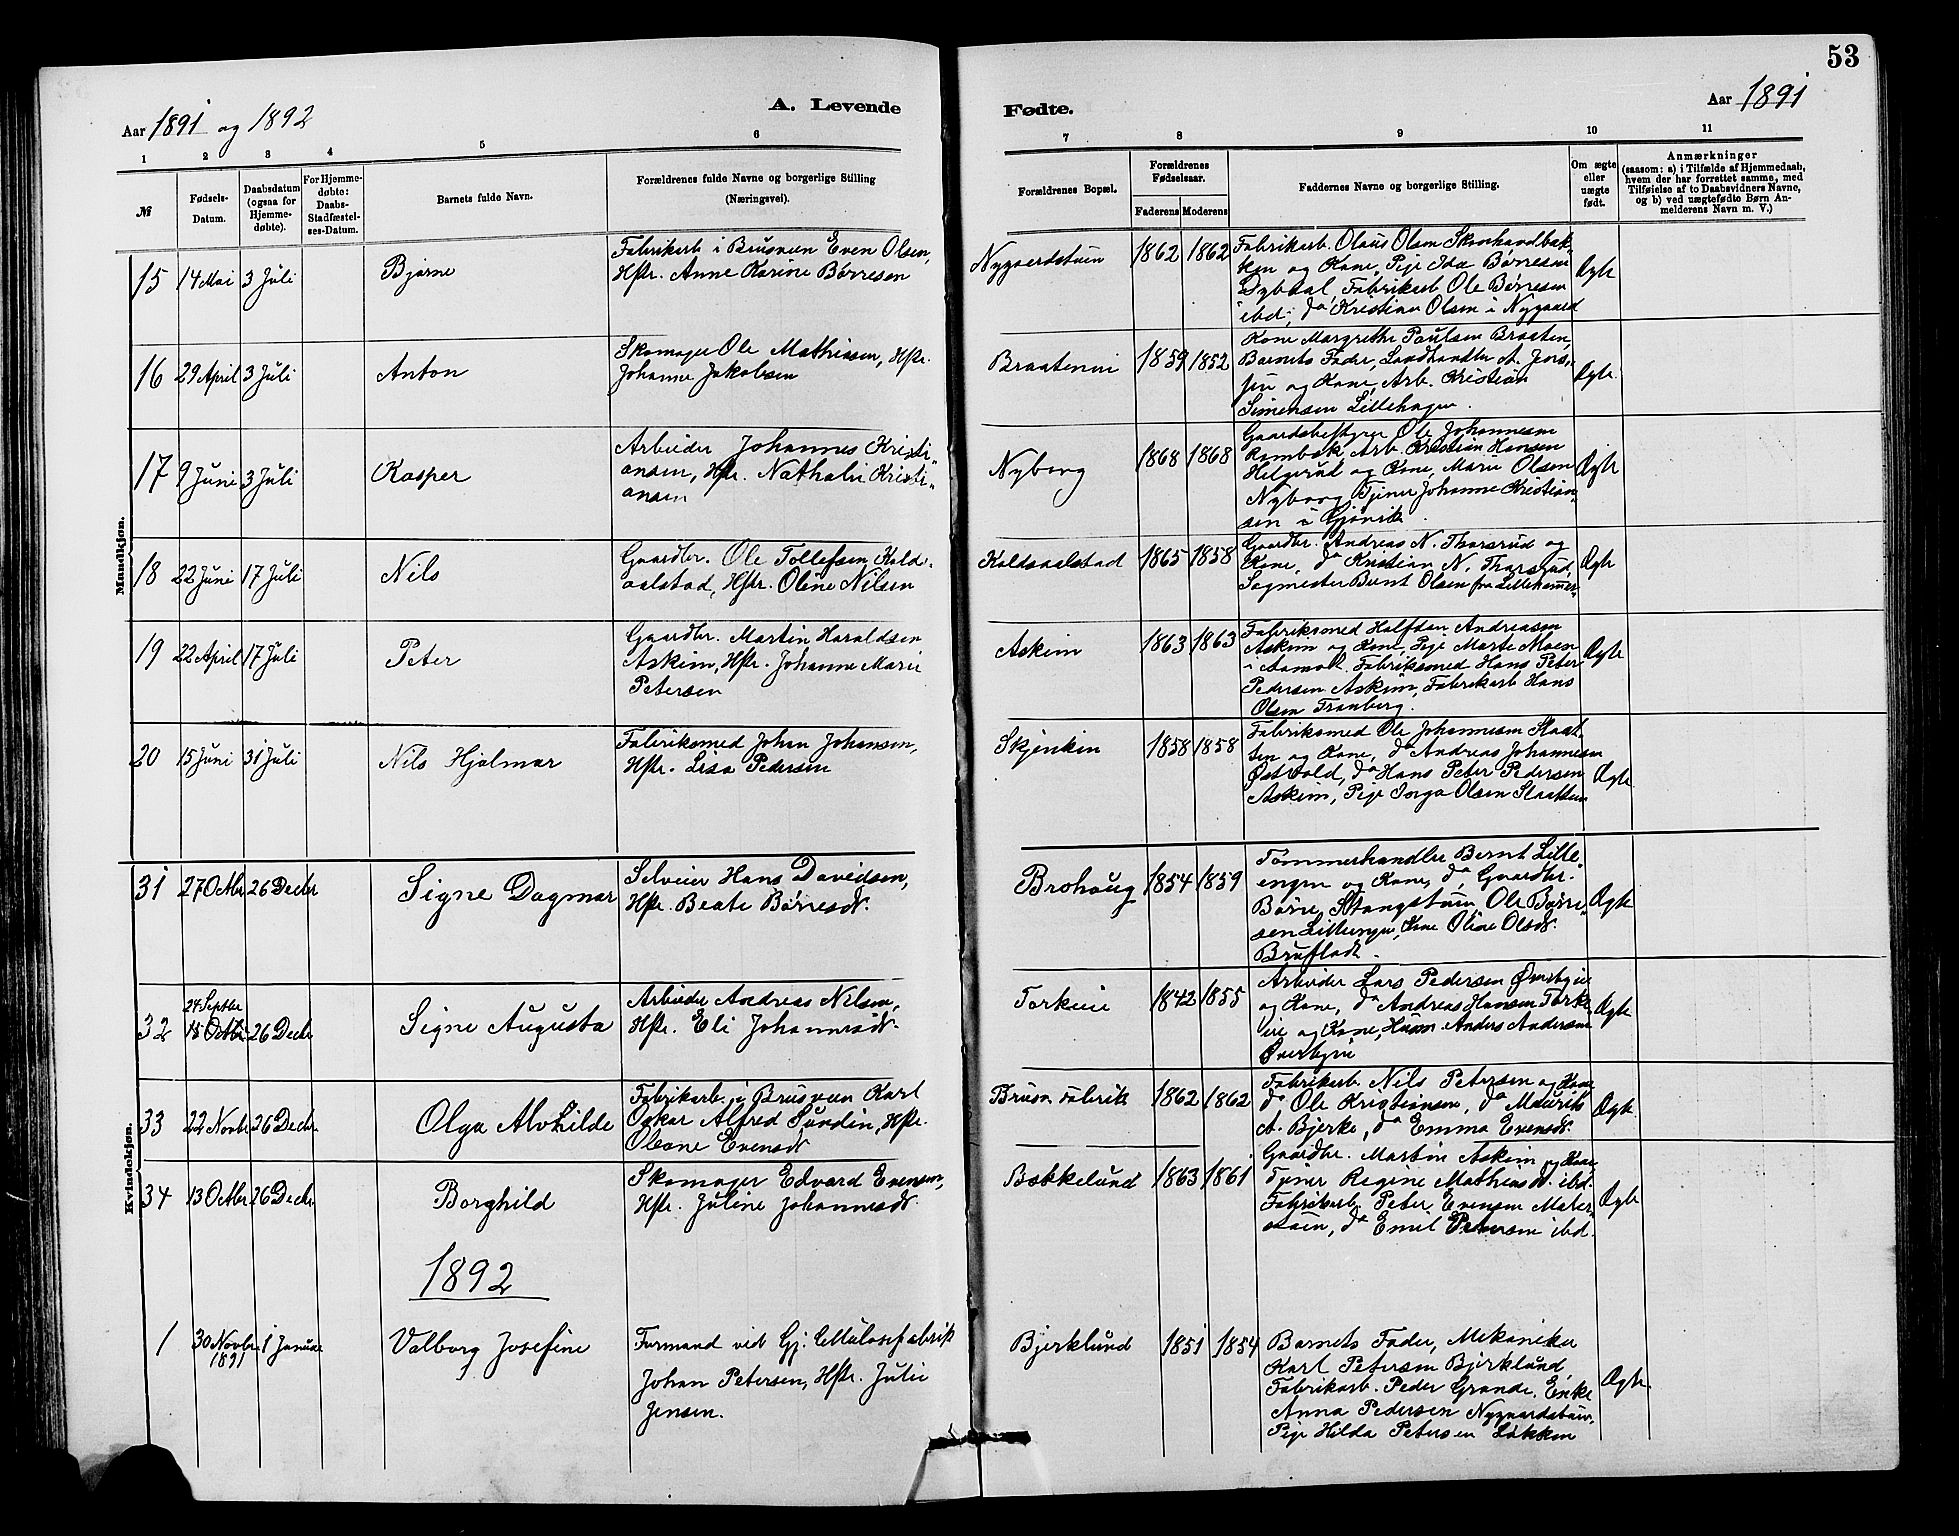 53
Aar 1891 og 1892
A. Levende
Fødte.
Aar 1891
1 2 3 4 5 6 7 8 9 10 11
№
Fødsels-Datum.
Daabsdatum (ogsaa for Hjemme-døbte).
For Hjemme-døbte: Daabs-Stadfæstel-ses-Datum.
Barnets fulde Navn.
Forældrenes fulde Navne og borgerlige Stilling (Næringsvei).
Forældrenes Bopæl.
Forældrenes Fødselsaar.
Faderens Moderens
Faddernes Navne og borgerlige Stilling.
Om ægte eller uægte født.
Anmærkninger
(saasom: a) i Tilfælde af Hjemmedaab,
hvem der har forrettet samme, med
Tilføielse af to Daabsvidners Navne,
og b) ved uægtefødte Børn An-
melderens Navn m. V.)
Mandkjøn.
15 14 Mai 3 Juli Bjarne
Fabrikarb i Brusveen Even Olsen,
Hstr. Anne Karine Børresen
Nygaardstuen 1862 1862
Fabrikarb. Olaus Olsen Skonhandbak-
ken og Kone, Pige Ida Børresen
Dybdal Fabrikarb Ole Børresen
ibd., do Kristian Olsen i Nygaard
Ægte
16 29 April 3 Juli Anton
Skomager Ole Mathiasen, Hstr.
Johanne Jakobsen
Braatenin 1859 1852
Kone Margrethe Paulsen Braaten,
Barnets Fader, Landhandler A. Jens-
sen og Kone, Arb. Kristian
Simensen Lillehagen.
Ægte.
17 9 Juni 3 Juli Kasper
Arbeider Johannes Kristi-
ansen, Hstr. Nathalie Kristi-
ansen
Nyborg 1868 1868
Gaardsbestyrer Ole Johannesen
Rambæk Arb. Kristian Hansen
Helgerud og Kone, Marie Olsen
Nyborg, Tjener Johanne Kristian-
sen i Gjøvik.
Ægte
18 22 Juni 17 Juli Nils
Gaardbr. Ole Tollefsen Kold-
aalstad, Hstr. Oline Nilsen
Koldaalstad 1865 1858
Gaardbr. Andreas N. Thorsrud og
Kone, do Kristian N. Thorsrud,
Sagmester Bernt Olsen fra Lillehammer
Ægte
19 22 April 17 Juli Peter
Gaardbr. Martin Haraldsen
Askim, Hstr. Johanne Marie
Petersen
Askim 1863 1863
Fabriksmed Halfdan Andreasen
Askim og Kone, Pige Marte Moen
i Aamodt. Fabriksmed Hans Peter
Pedersen Askim, Fabrikarb Hans
Olsen Tranberg.
Ægte
20 15 Juni 31 Juli Nils Hjalmar
Fabriksmed Johan Johansen,
Hstr. Lisa Pedersen
Skjenkin 1858 1858
Fabriksmed Ole Johannesen Slaat-
ten og Kone, do Andreas Johannesen
Østvold, do Hans Peter Pedersen
Askim, Pige Inga Olsen Slaatten
Ægte
Kvindekjøn.
31 27 Octbr 26 Decbr Signe Dagmar
Selveier Hans Davidsen,
Hstr. Beate Børresdr.
Brohaug 1854 1859
Tømmerhandler Bernt Lille-
engen og Kone, do, Gaardbr.
Børre Stangstuen, Ole Børre-
sen Lilleengen, Kone Oline Olsdr.
Bruflodt.
Ægte
32 24 Septbr 15 Octbr 26 Decbr Signe Augusta
Arbeider Andreas Nilsen,
Hstr. Eli Johannesdr.
Torkeie 1842 1855
Arbeider Lars Pedersen Øverbyeie
og Kone, do Andreas Hansen Torke-
eie og Kone, Husm. Anders Andersen
Øverbyeie
Ægte
33 22 Novbr 26 Decbr. Olga Alvhilde
Fabrikarb. i Brusveen Karl
Oskar Alfred Sundin, Hstr.
Oleane Evensdr
Brusv Fabrik 1862 1862
Fabrikarb. Nils Petersen og Kone
do Ole Kristiansen, do Mauritz
A. Bjerke, do Emma Evensdr.
Ægte.
34 13 Octbr 26 Decbr. Borghild
Skomager Edvard Evensen,
Hstr. Juline Johannesdr.
Bækkelund 1863 1861
Gaardbr. Martin Askim og Kone
Tjener Regine Mathiasdr. ibd.
Fabrikarb. Peter Evensen Mater-
stuen, do Emil Petersen ibd.
Ægte
1892
1 30 Novbr 1891 1 Januar Valborg Josefine
Formand ved Gj. Cellulosefabrik
Johan Petersen, Hstr. Julie
Jensen.
Bjerklund 1851 1854
Barnets Fader, Mekaniker
Karl Petersen Bjerklund,
Fabrikarb. Peder Grande, Enke
Anna Pedersen Nygaardstuen,
Pige Hilda Petersen Løkken
Ægte.